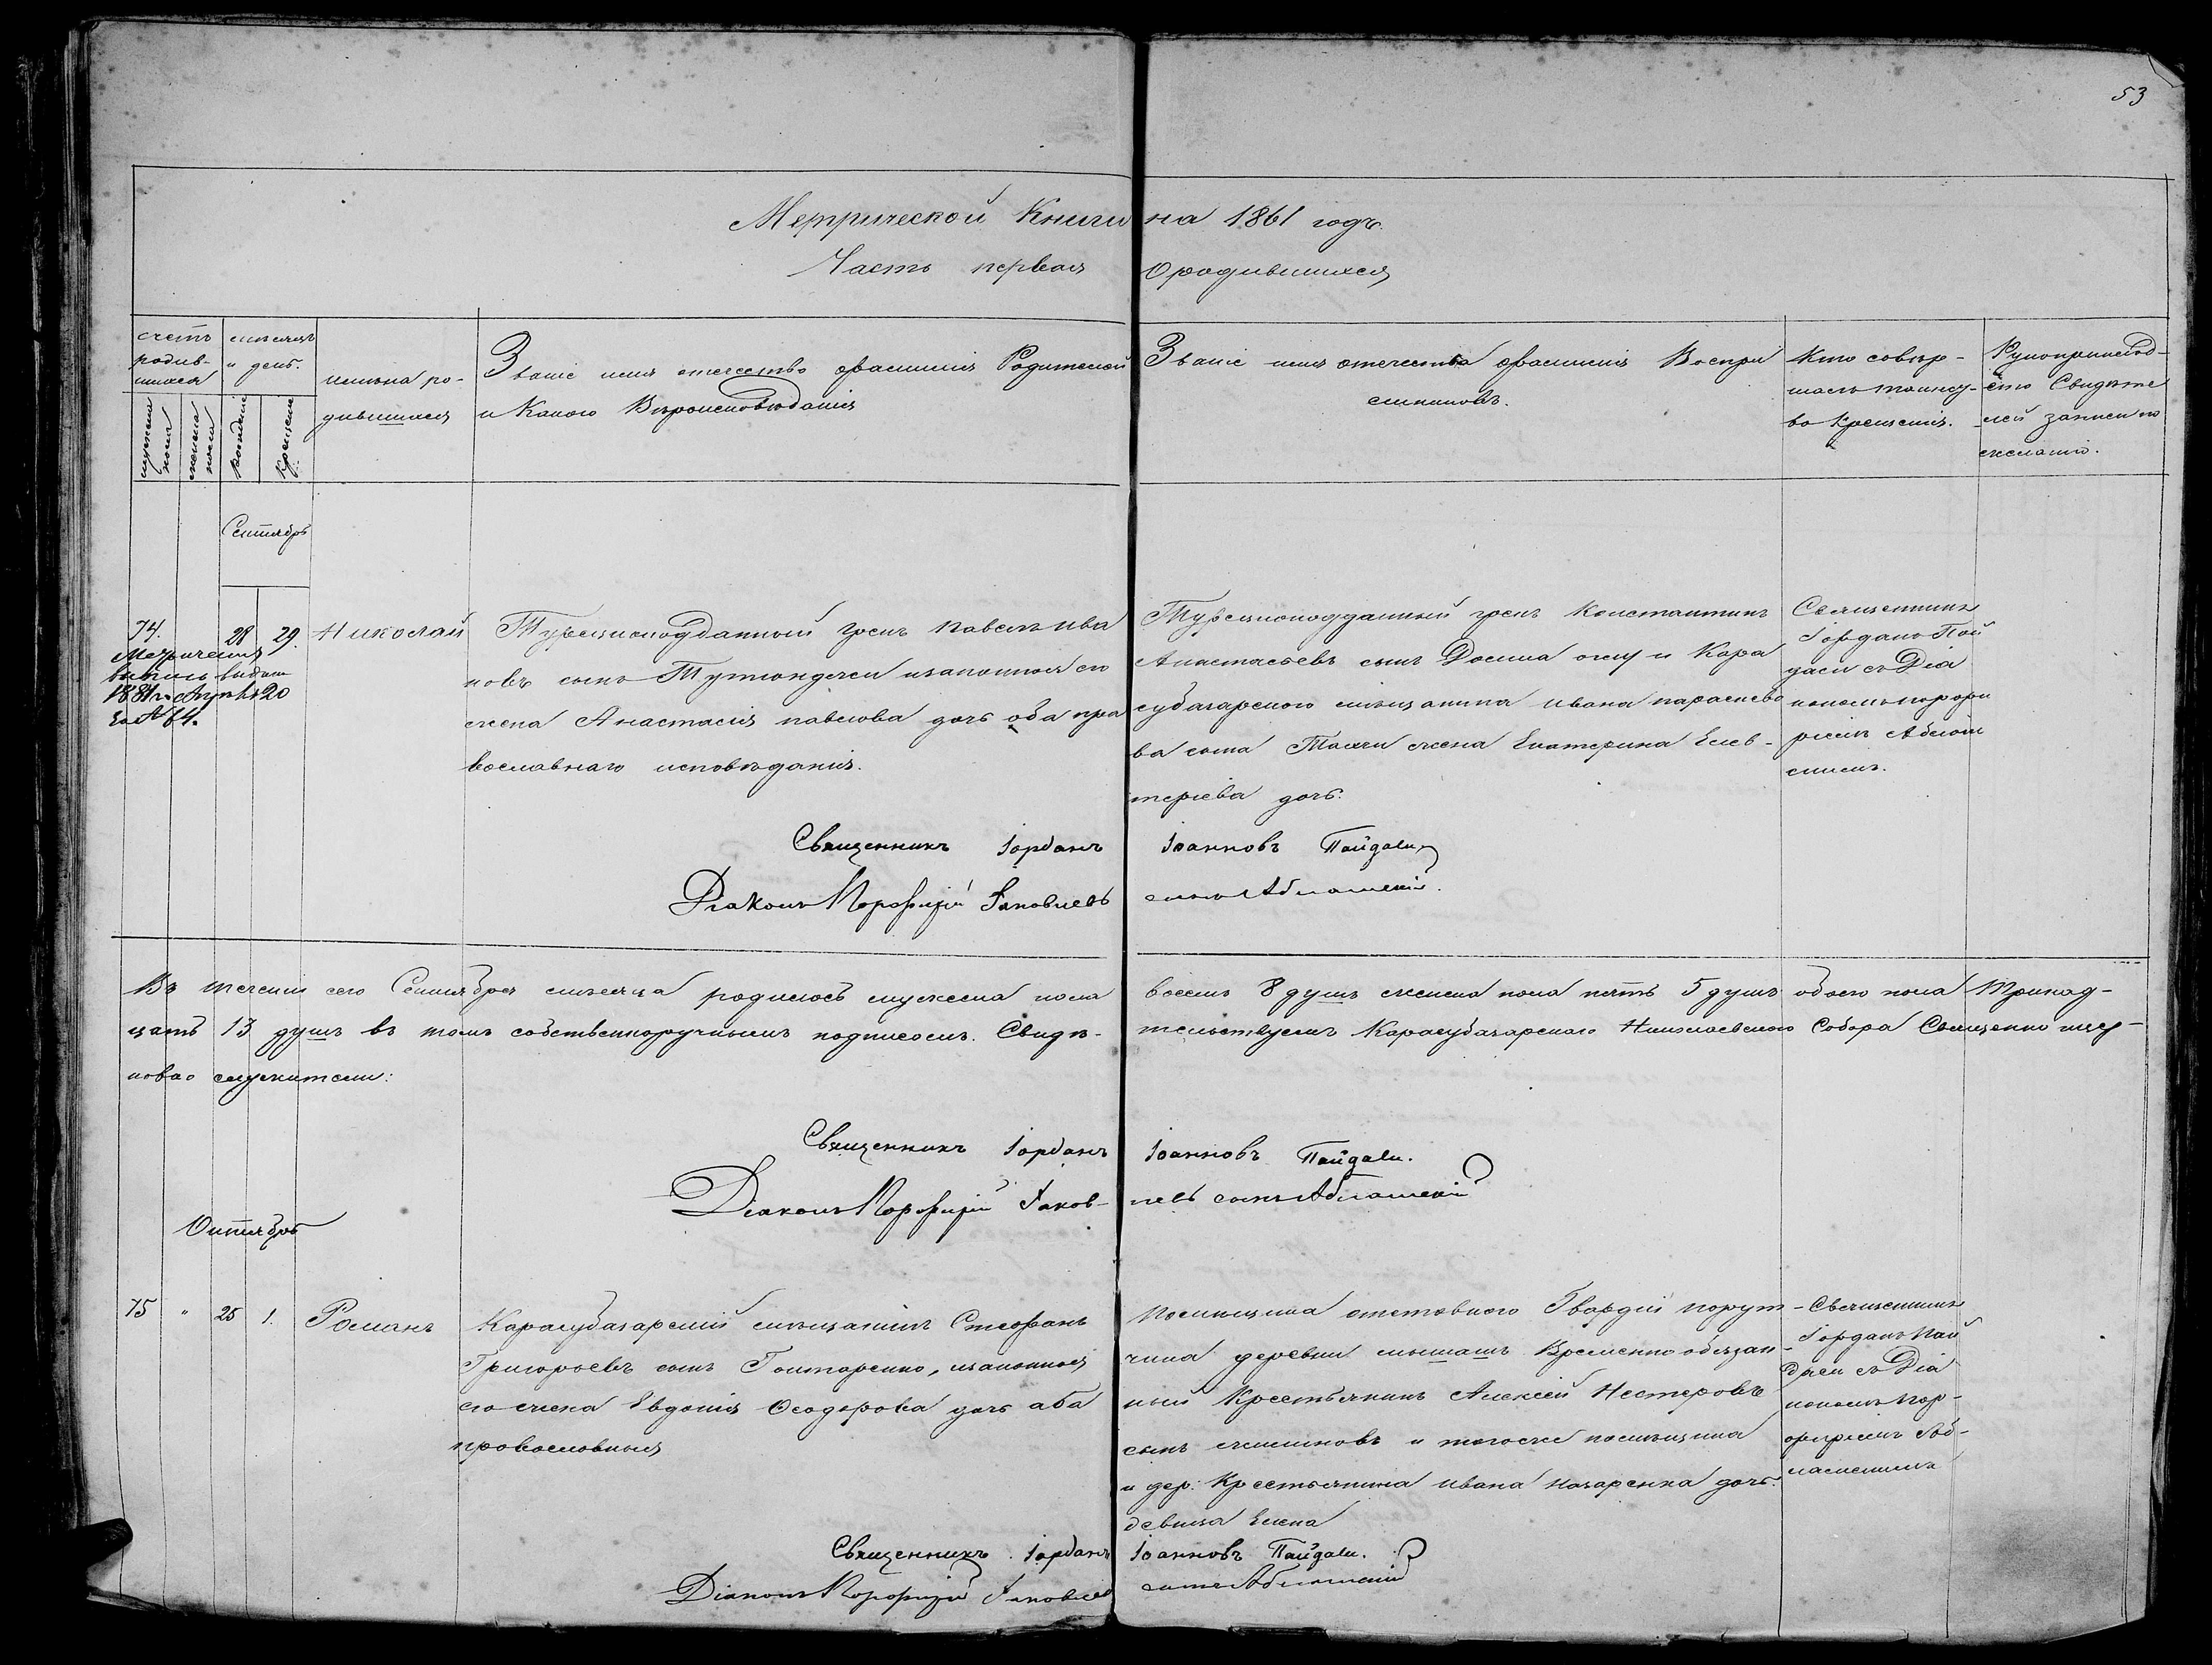 53
Метрической Книги на 1861 годъ.
Часть первая О родившихся
счетъ родив-шихся
мѣсяцъ и день.
мужеска пола
женска пола
рожденіе
крещеніе
имѣна ро-
дившихся
Званіе имя отечество фамилія Родителей
и Какого Вѣроисповѣданія
Званіе имя отечества фамилія Воспри
емниковъ.
Кто совѣр-
шалъ таинсу-
во крещенія.
Рукоприклад-
ство Свидѣте
лей записи по
желанію.
Сентябрь
74. 28 29. Николай
Метрическая
выпись выдана
1881 г. Августа 20
за № 64.
Турецкоподданный грекъ Павелъ Ива
новъ сынъ Тутонджи изаконная его
жена Анастасія павлова дочь оба пра
вославнаго исповѣданія.
Турецкоподданный грекъ Константинъ
Анастасьевъ сынъ и Кара
субазарского мѣщанина ивана параскево
ва сына жена Екатерина Елев-
теріева дочь.
Священникъ
Іорданъ Пай
дали съ Діа
кономъ порфи
ріемъ Аблаш
скимъ.
Священникъ Іорданъ Іоанновъ Пайдали
Діаконъ Порфирій Яковлевъ сынъ Аблашскій.
Въ теченіи сего Сентября мѣсяца родилось мужеска пола восемь 8 душъ женска пола пять 5 душъ обоего пола Тринад-
цать 13 душъ въ томъ собственноручнымъ подписомъ. Свидѣ-тельствуемъ Карасубазарскаго Николаевского Собора Священно цер-
ковно служители:
Священникъ Іорданъ Іоанновъ Пайдали.
Діаконъ Порфирій Яков-левъ сынъ Аблашскій
Октябрь
75 " 25 1. Романъ
Карасубазарскій мѣщанинъ Стефанъ
Григорьевъ сынъ Гонтаренко, изаконная
его жена Евдокія Ѳеодорова дочь аба
провославныя
помѣщика отставного Гвардіи порут-
чика деревни Временно обязан-
ный Крестьянинъ Алексѣй Нестеровъ
сынъ и тогоже помѣщика
и дер. Крестьянина ивана назаренка дочь.
девица Елена
Священникъ
Іорданъ Пай
дали съ Діа
кономъ пор-
фиріемъ Аб-
лашскимъ
Священникъ Іорданъ Іоанновъ Пайдали.
Діаконъ Порфирій Яковлев сынъ Аблашскій